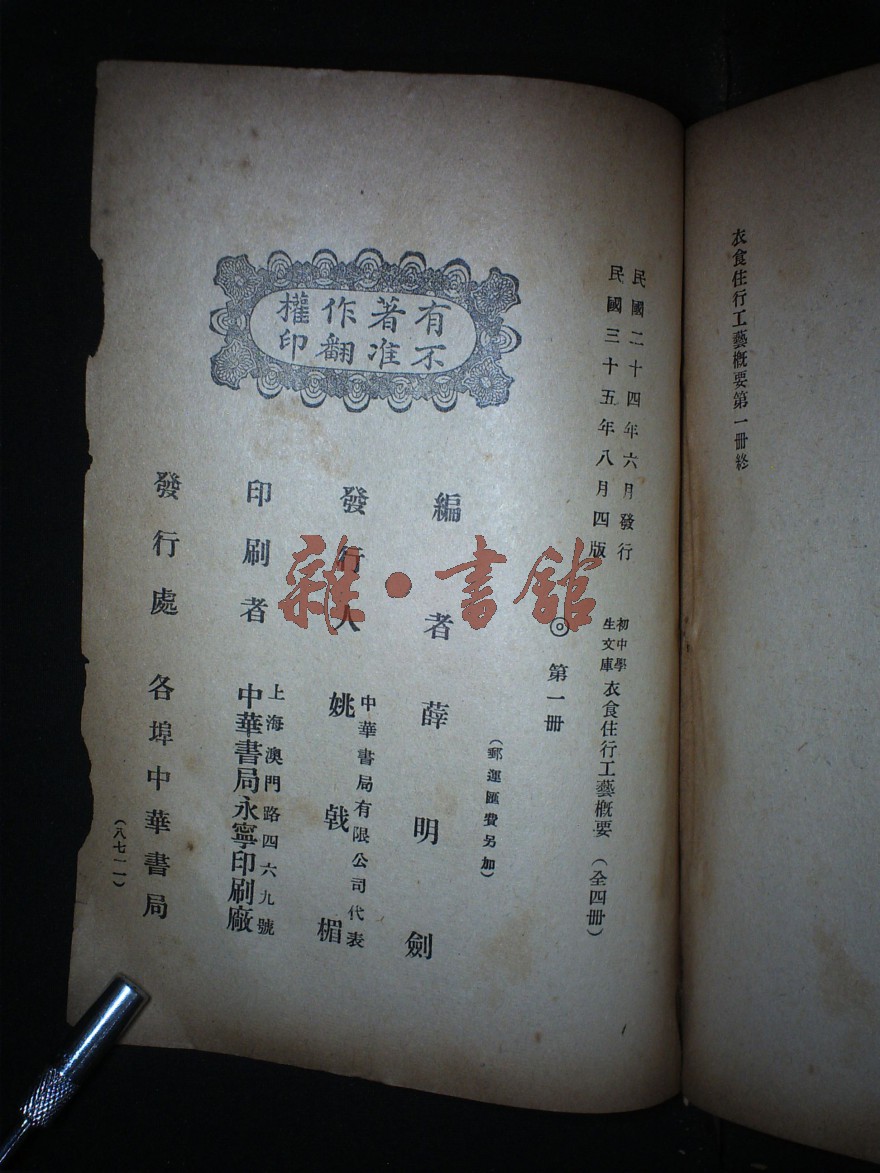 衣食住行工藝概要第一冊終
民國二十四年六月發行
民國三十五年八月四版
初中學生文庫 衣食住行工藝概要(全四冊)
◎第一冊
(郵運匯費另加)
有著作權
不准翻印
編者 薛明劍
發行人 中華書局有限公司代表
姚戟楣
印刷者 上海澳門路四六九號
中華書局永寧印刷廠
發行處 各埠中華書局
(八七一一)
雜·書館